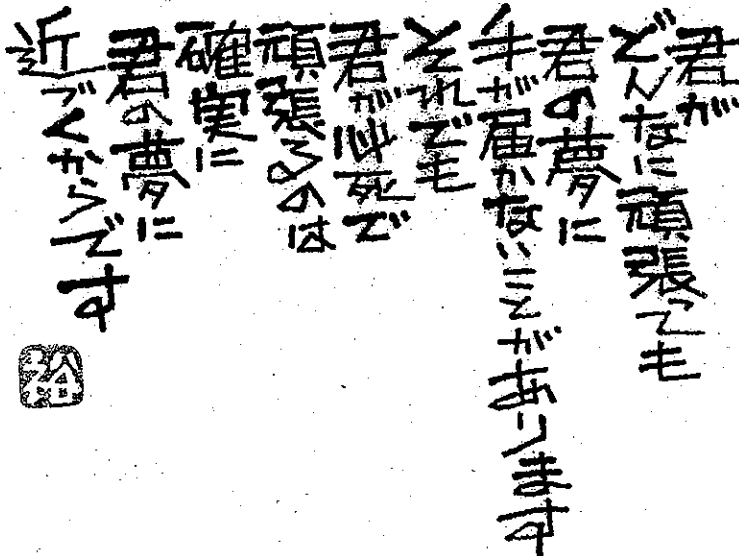 君が
どんなに頑張っても
君の夢に
手が届かないことがあります
それでも
君が必死で
頑張るのは
確実に
君の夢に
近づくからです